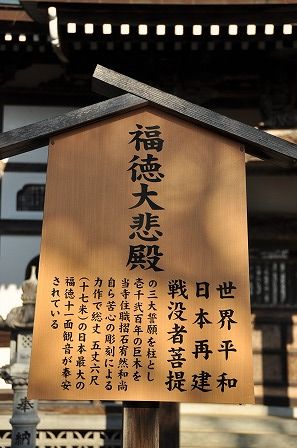 福徳大悲殿
世界平和
日本再建
戦没者菩提
の三大誓願を柱とし
壱千弐百年の巨木を
当寺住職摺石宥然和尚
自ら苦心の彫刻による
力作で総丈 五丈六尺
(十七米)の日本最大の
福徳十一面観音が奉安
されている
奉